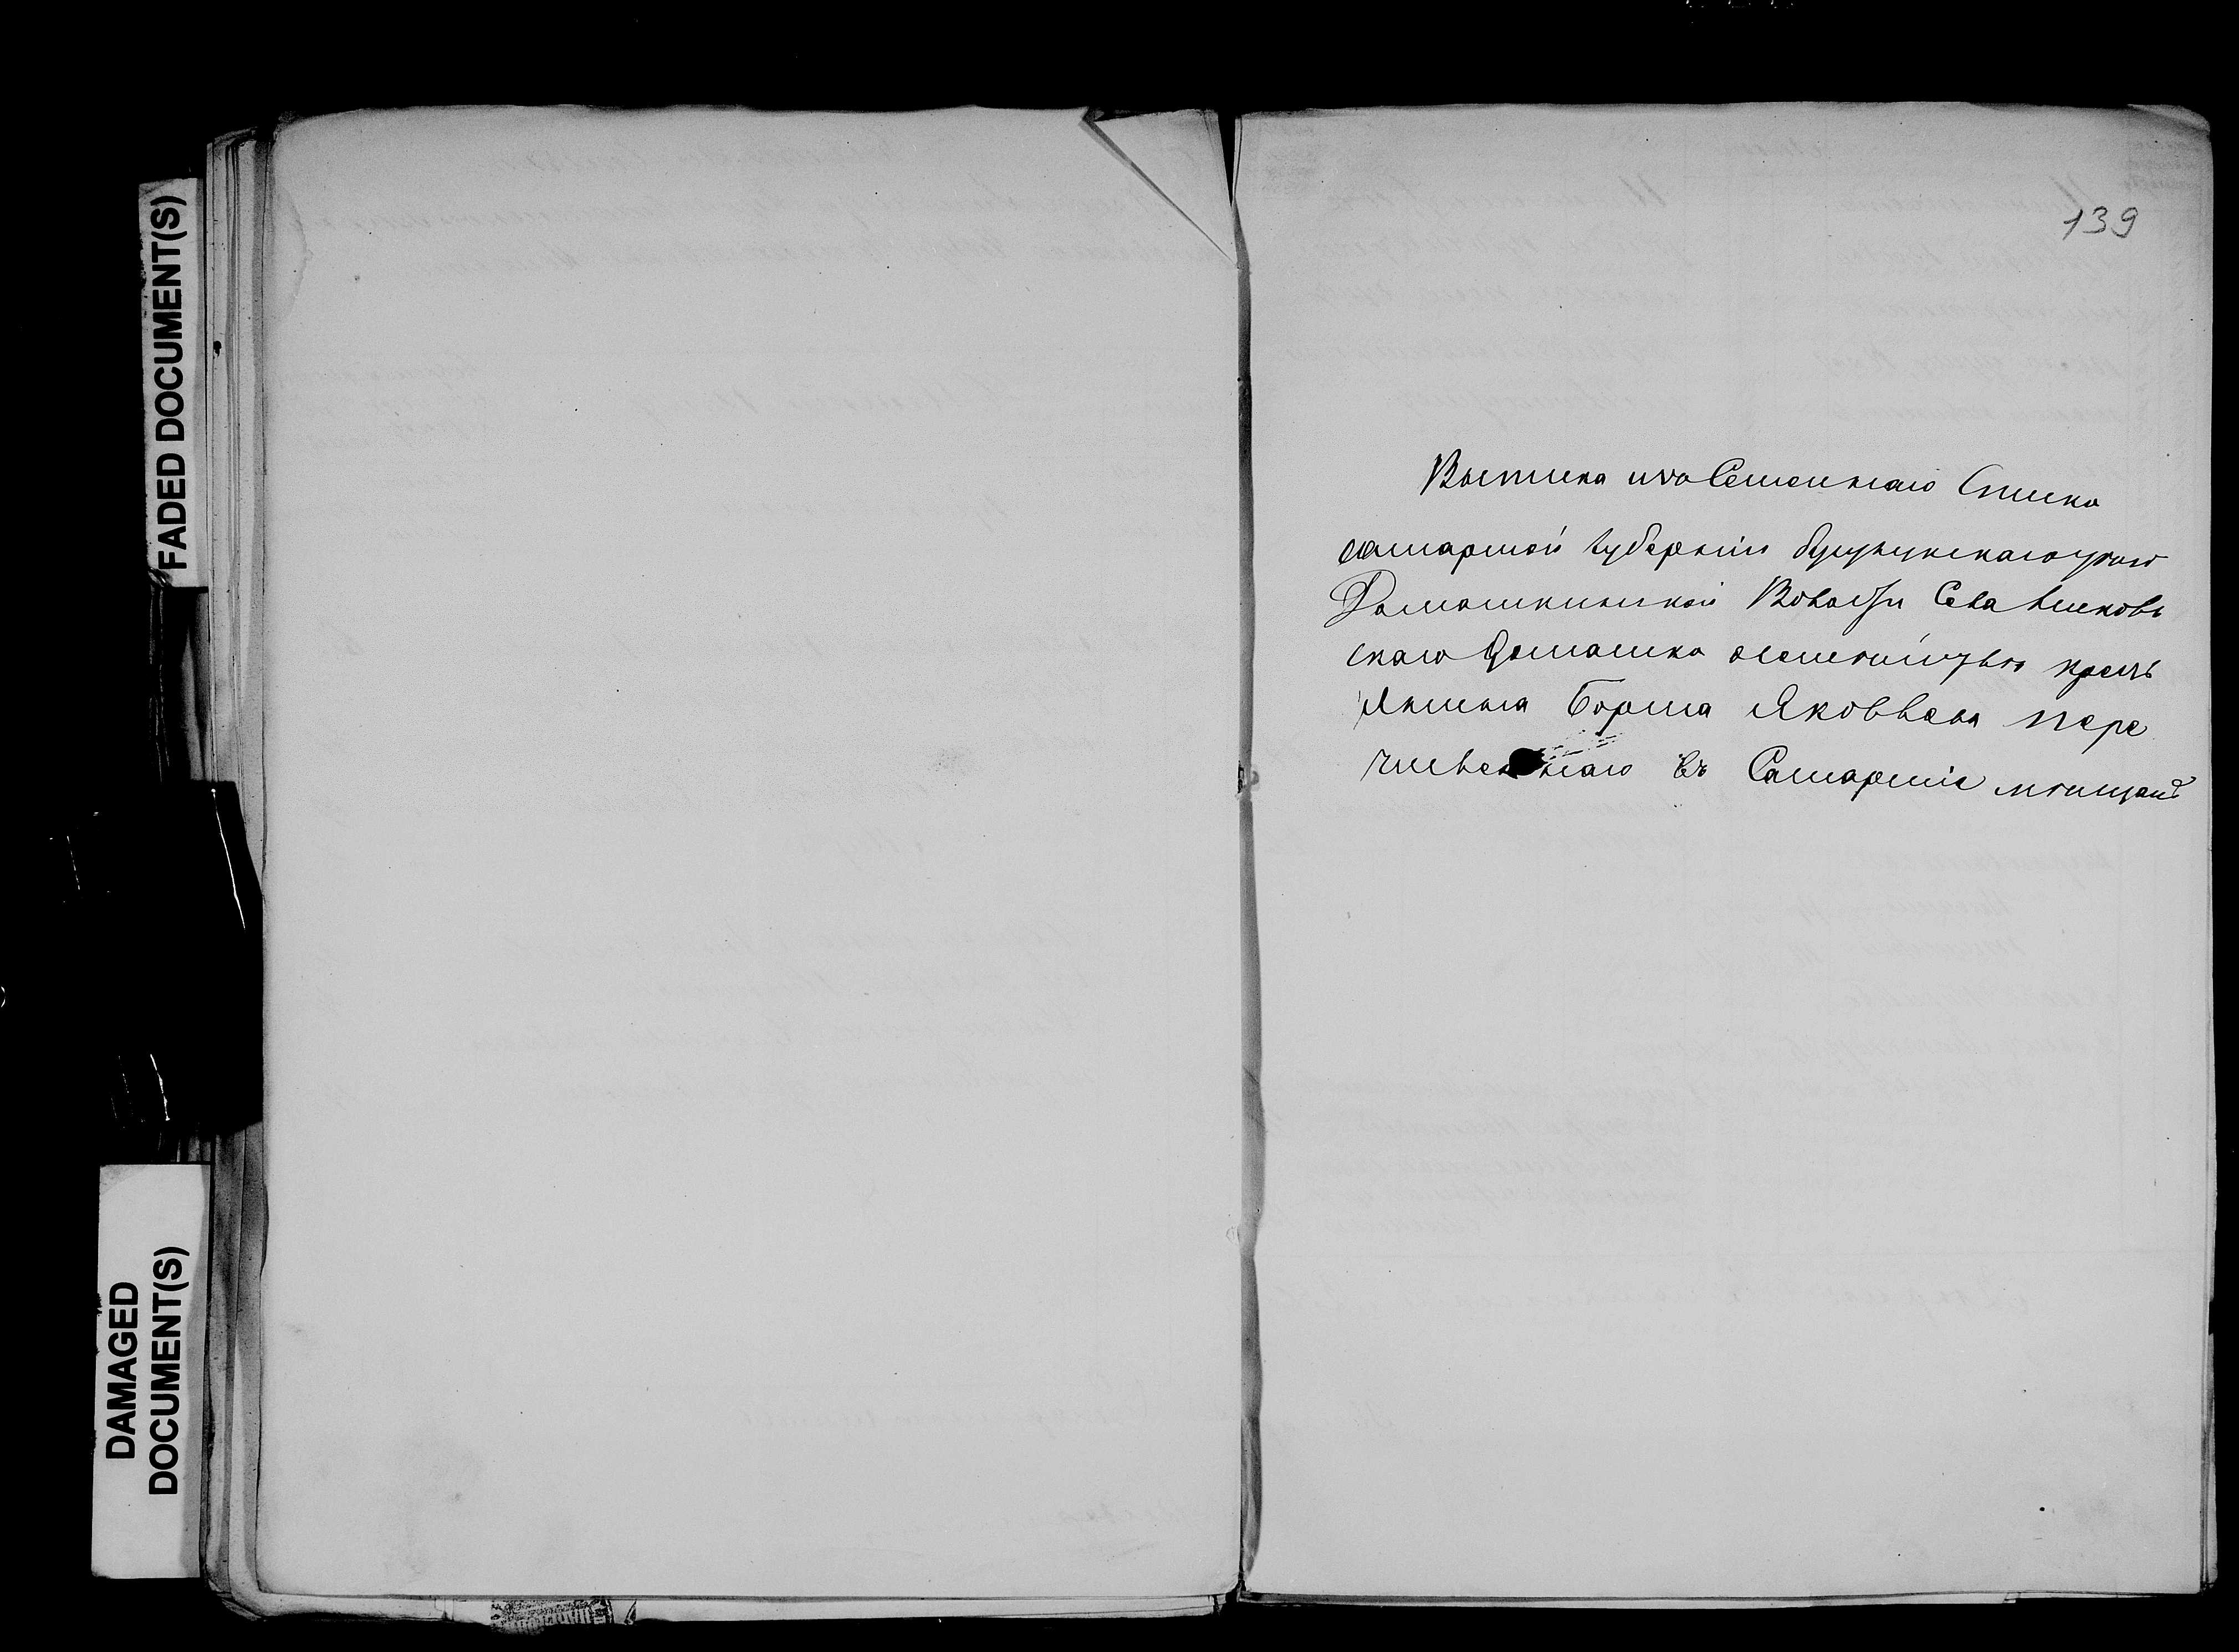 FADED DOCUMENT(S)
DAMAGED
DOCUMENT(S)
139
Выписка изъ Семейнаго Списка
самарской губерніи бузулукскаго
Домашкинской Волости Села
скаго Домашка кресть
янина Бориса Яковлева пере
численнаго въ Самарскіе мѣщане